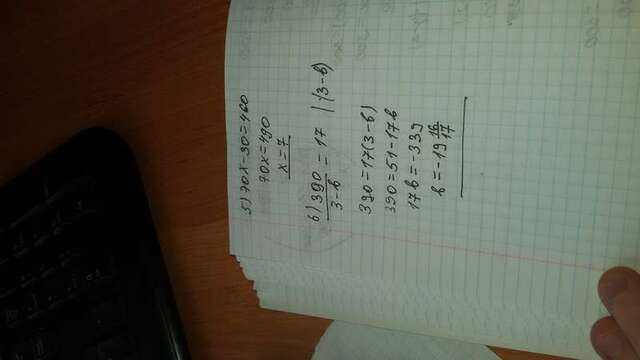 5) 70x-30=460
70x=490
x=7
6) 390/3-b = 17 | ·(3-b)
390=17(3-b)
390=51-17b
17b=-339
b=-19 16/17